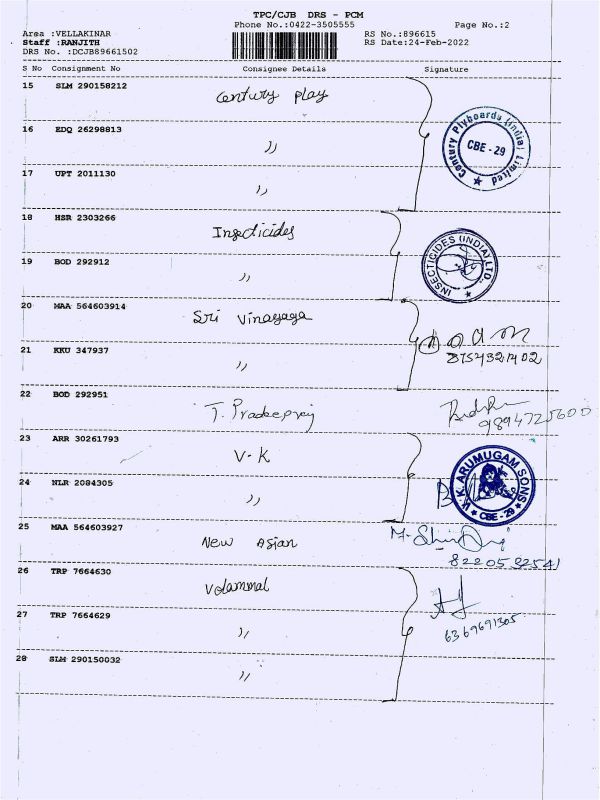 TPC/CJB DRS - PCM
Phone No.:0422-3505555
Page No.:2
Area :VELLAKINAR
Staff :RANJITH
DRS No. :DCJB89661502
RS No.:896615
RS Date:24-Feb-2022
S No Consignment No Consignee Details Signature
15 SLM 290158212 Century Play
16 EDQ 26298813 ,,
Century Plyboards (India) Limited
CBE - 29
17 UPT 2011130 ,,
18 HSR 2303266 Insecticides
INSECTICIDES (INDIA) LTD.
19 BOD 292912 ,,
20 MAA 564603914 Sri Vinayaga
21 KKU 347937 ,,
22 BOD 292951 T. Pradeepraj
9894725600
23 ARR 30261793 V-K
V.K. ARUMUGAM SONS
CBE - 29
24 NLR 2084305 ,,
25 MAA 564603927 New Asian
8220532541
26 TRP 7664630 Velammal
27 TRP 7664629 ,,
6369691305
28 SLM 290150032 ,,